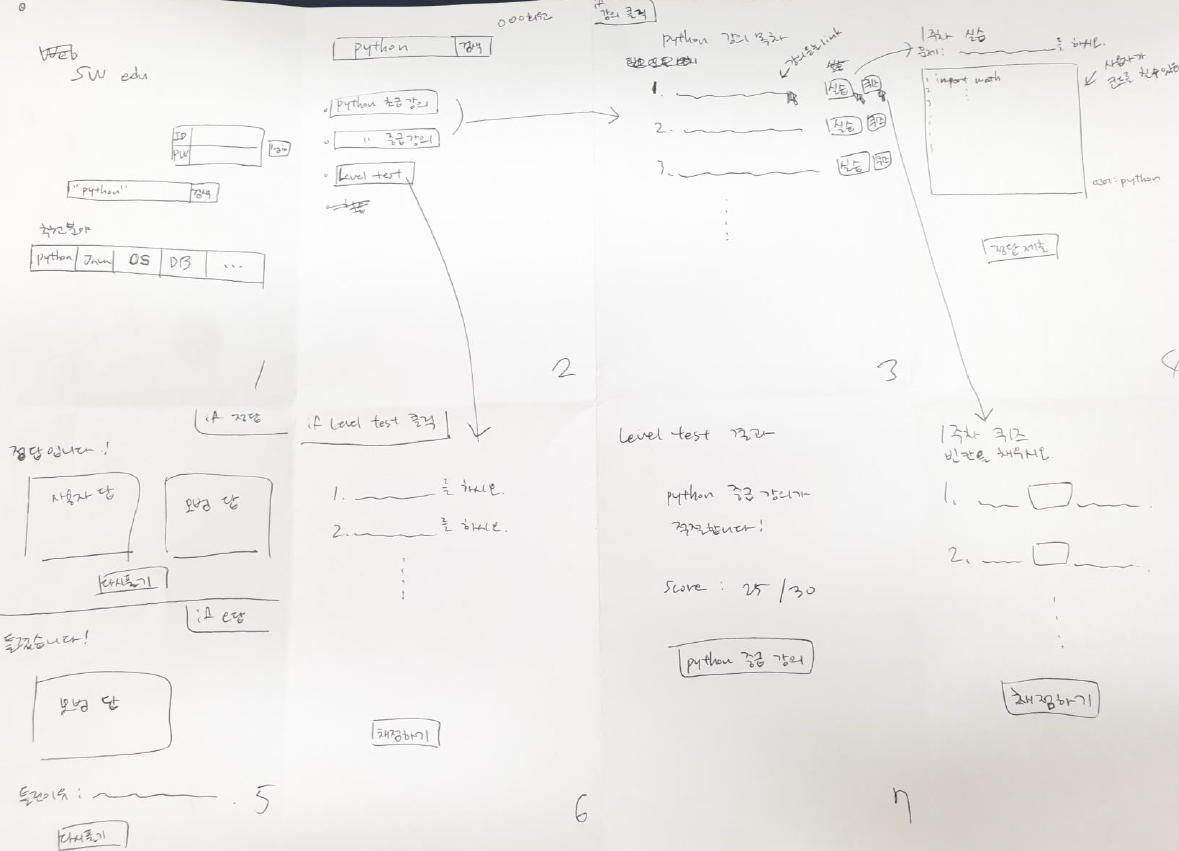 SW edu
ID
PW
"python" 검색
추천분야
python Java OS DB ...
1
python 검색
python 초급 강의
" 중급 강의
Level test
2
if 강의 클릭
python 강의 목차
강의 link
1. 실습 퀴즈
2. 실습 퀴즈
3. 실습 퀴즈
3
1주차 실습
문제: 를 하시오.
1 import math
2
3
사용자가
코드를 칠 수 있음
언어: python
정답 제출
4
if 정답
정답입니다!
사용자 답
모범 답
다시풀기
if 오답
틀렸습니다!
모범 답
틀린이유:
다시풀기
5
if Level test 클릭
1. 를 하시오.
2. 를 하시오.
채점하기
6
Level test 결과
python 중급 강의가
적절합니다!
Score : 25/30
python 중급 강의
7
1주차 퀴즈
빈칸을 채우시오.
1.
2.
채점하기